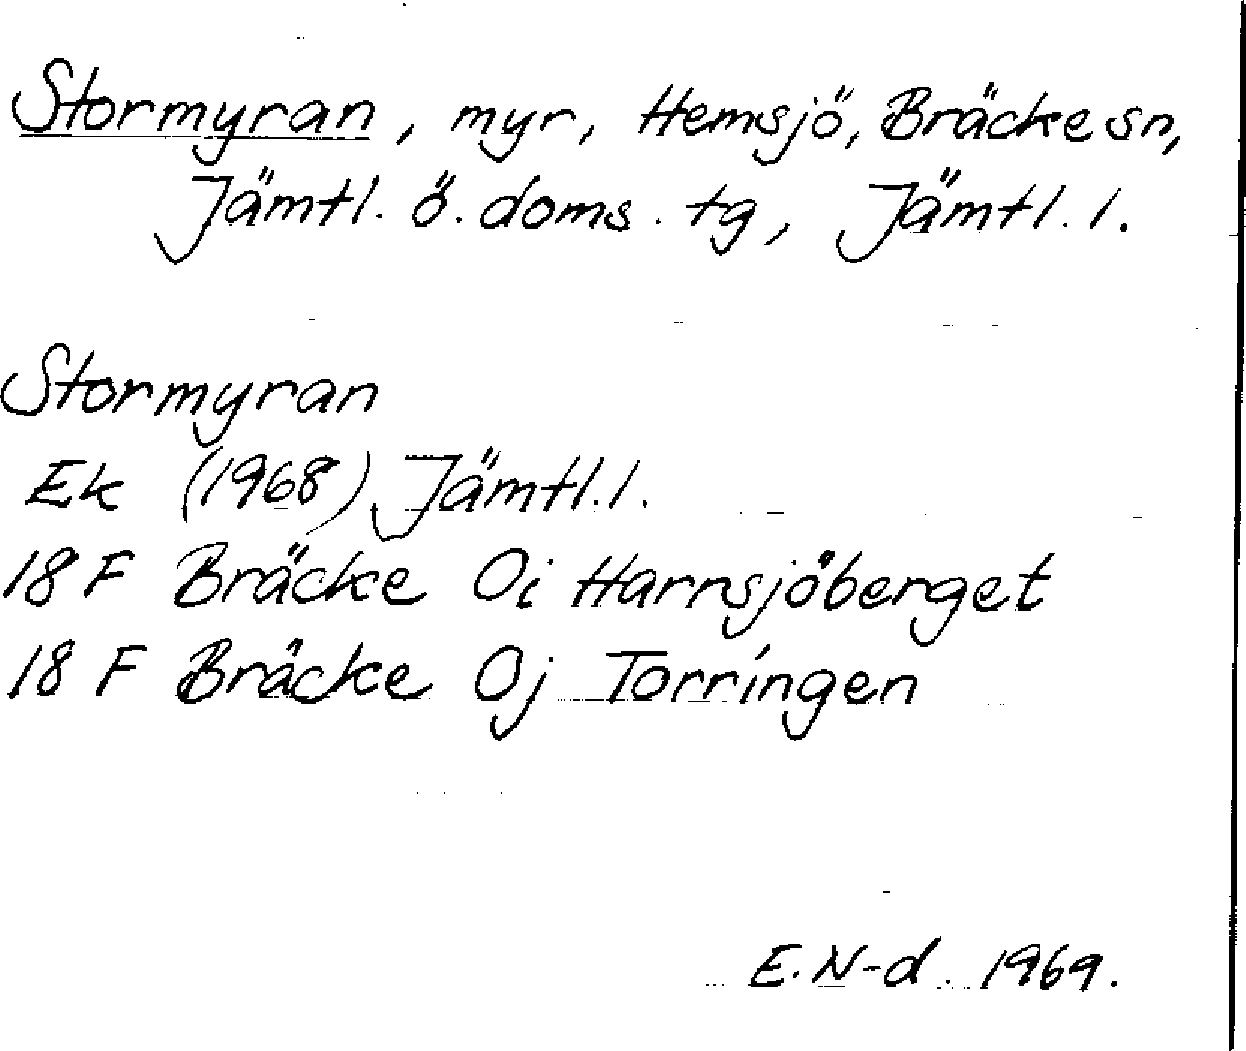 Stormyran, myr, Hemsjö, Bräcke sn,
Jämtl. ö. doms. tg, Jämtl. l.
Stormyran
Ek (1968) Jämtl. l.
18 F Bräcke 0i Harrsjöberget
18 F Bräcke 0j Torringen
E. N-d. 1969.